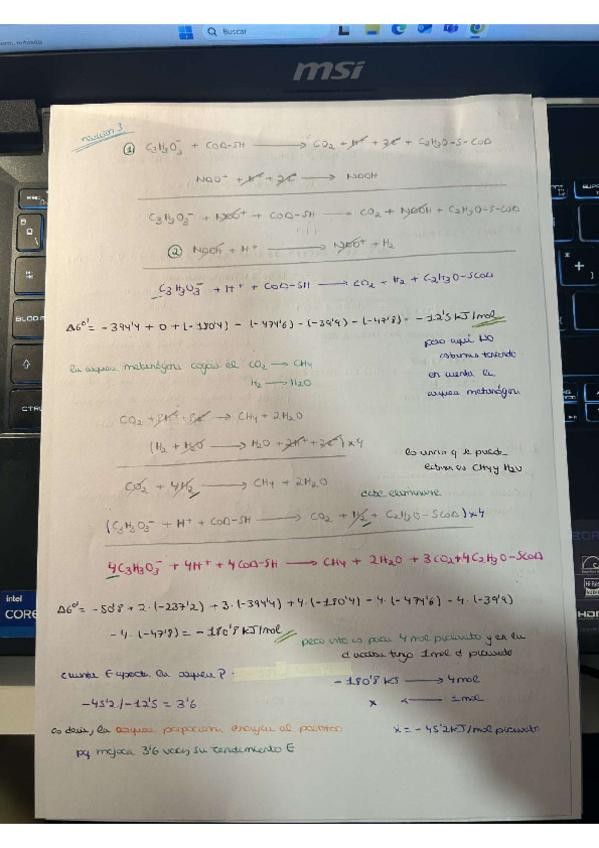 Buscar
msi
reacción 3
① C3H3O3⁻ + COA-SH → CO2 + H⁺ + 2e⁻ + C2H3O-S-COA
NAD⁺ + H⁺ + 2e⁻ → NADH
C3H3O3⁻ + NAD⁺ + COA-SH → CO2 + NADH + C2H3O-S-COA
② NADH + H⁺ → NAD⁺ + H2
C3H3O3⁻ + H⁺ + COA-SH → CO2 + H2 + C2H3O-SCOA
ΔG°' = -394'4 + 0 + (-180'4) - (-474'6) - (-39'9) - (-47'8) = -12'5 KJ/mol
pero aquí NO
estamos teniendo
en cuenta la
arquea metanógena
la arquea metanógena coge el CO2 → CH4
H2 → H2O
CO2 + 8H⁺ + 8e⁻ → CH4 + 2H2O
(H2 + H2O → H2O + 2H⁺ + 2e⁻) x4
lo único q se puede
es CH4 y H2O
CO2 + 4H2 → CH4 + 2H2O
debe eliminarse
(C3H3O3⁻ + H⁺ + COA-SH → CO2 + H2 + C2H3O-SCOA) x4
4C3H3O3⁻ + 4H⁺ + 4COA-SH → CH4 + 2H2O + 3CO2 + 4C2H3O-SCOA
ΔG°' = -50'8 + 2·(-237'2) + 3·(-394'4) + 4·(-180'4) - 4·(-474'6) - 4·(-39'9)
- 4·(-47'8) = -180'8 KJ/mol
pero esto es para 4 mol piruvato y en la
tengo 1mol d piruvato
cuánta E aporta la arquea?
-180'8 KJ → 4mol
-45'2 / -12'5 = 3'6
x ← 1mol
es decir, la arquea proporciona energía al
x = -45'2 KJ/mol piruvato
pq mejora 3'6 veces su rendimiento E
BLOQ
CTRL
intel
CORE